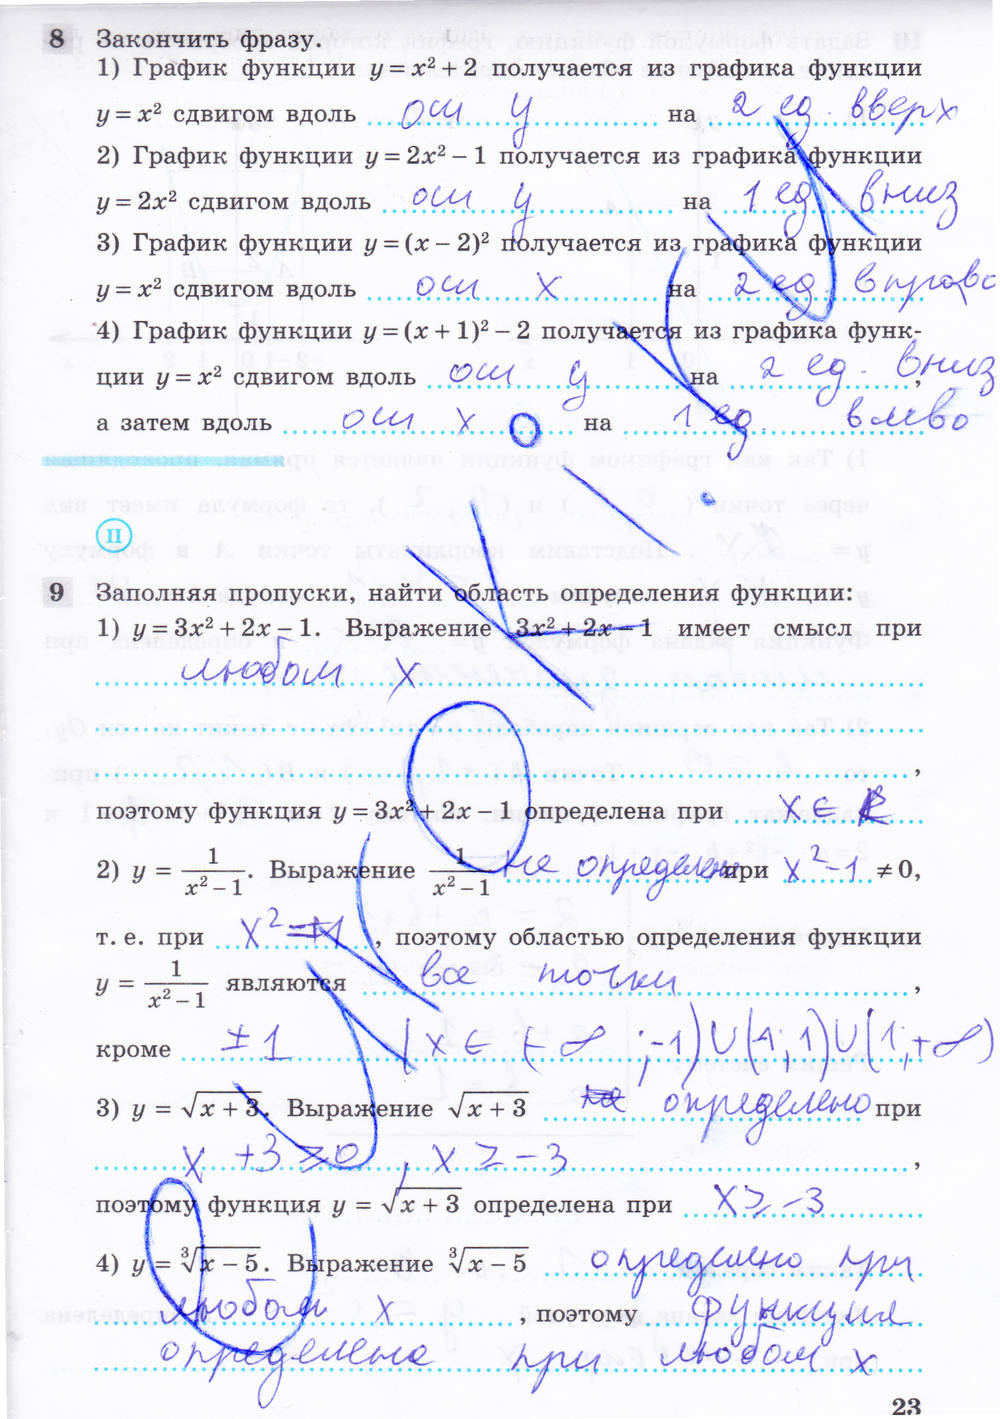 8 Закончить фразу.
1) График функции y = x² + 2 получается из графика функции
y = x² сдвигом вдоль оси y на 2 ед. вверх
2) График функции y = 2x² − 1 получается из графика функции
y = 2x² сдвигом вдоль оси y на 1 ед вниз
3) График функции y = (x − 2)² получается из графика функции
y = x² сдвигом вдоль оси x на 2 ед. вправо
4) График функции y = (x + 1)² − 2 получается из графика функ-
ции y = x² сдвигом вдоль оси y на 2 ед. вниз,
а затем вдоль оси x на 1 ед. влево
II
9 Заполняя пропуски, найти область определения функции:
1) y = 3x² + 2x − 1. Выражение 3x² + 2x − 1 имеет смысл при
любом x
,
поэтому функция y = 3x² + 2x − 1 определена при x ∈ R
2) y = 1/(x² − 1). Выражение 1/(x² − 1) не определено при x² − 1 ≠ 0,
т. е. при x² = ±1, поэтому областью определения функции
y = 1/(x² − 1) являются все точки,
кроме ±1 (x ∈ (−∞; −1) ∪ (−1; 1) ∪ (1; +∞)
3) y = √(x + 3). Выражение √(x + 3) определено при
x + 3 ≥ 0, x ≥ −3,
поэтому функция y = √(x + 3) определена при x ≥ −3
4) y = ∛(x − 5). Выражение ∛(x − 5) определено при
любом x, поэтому функция
определена при любом x
23